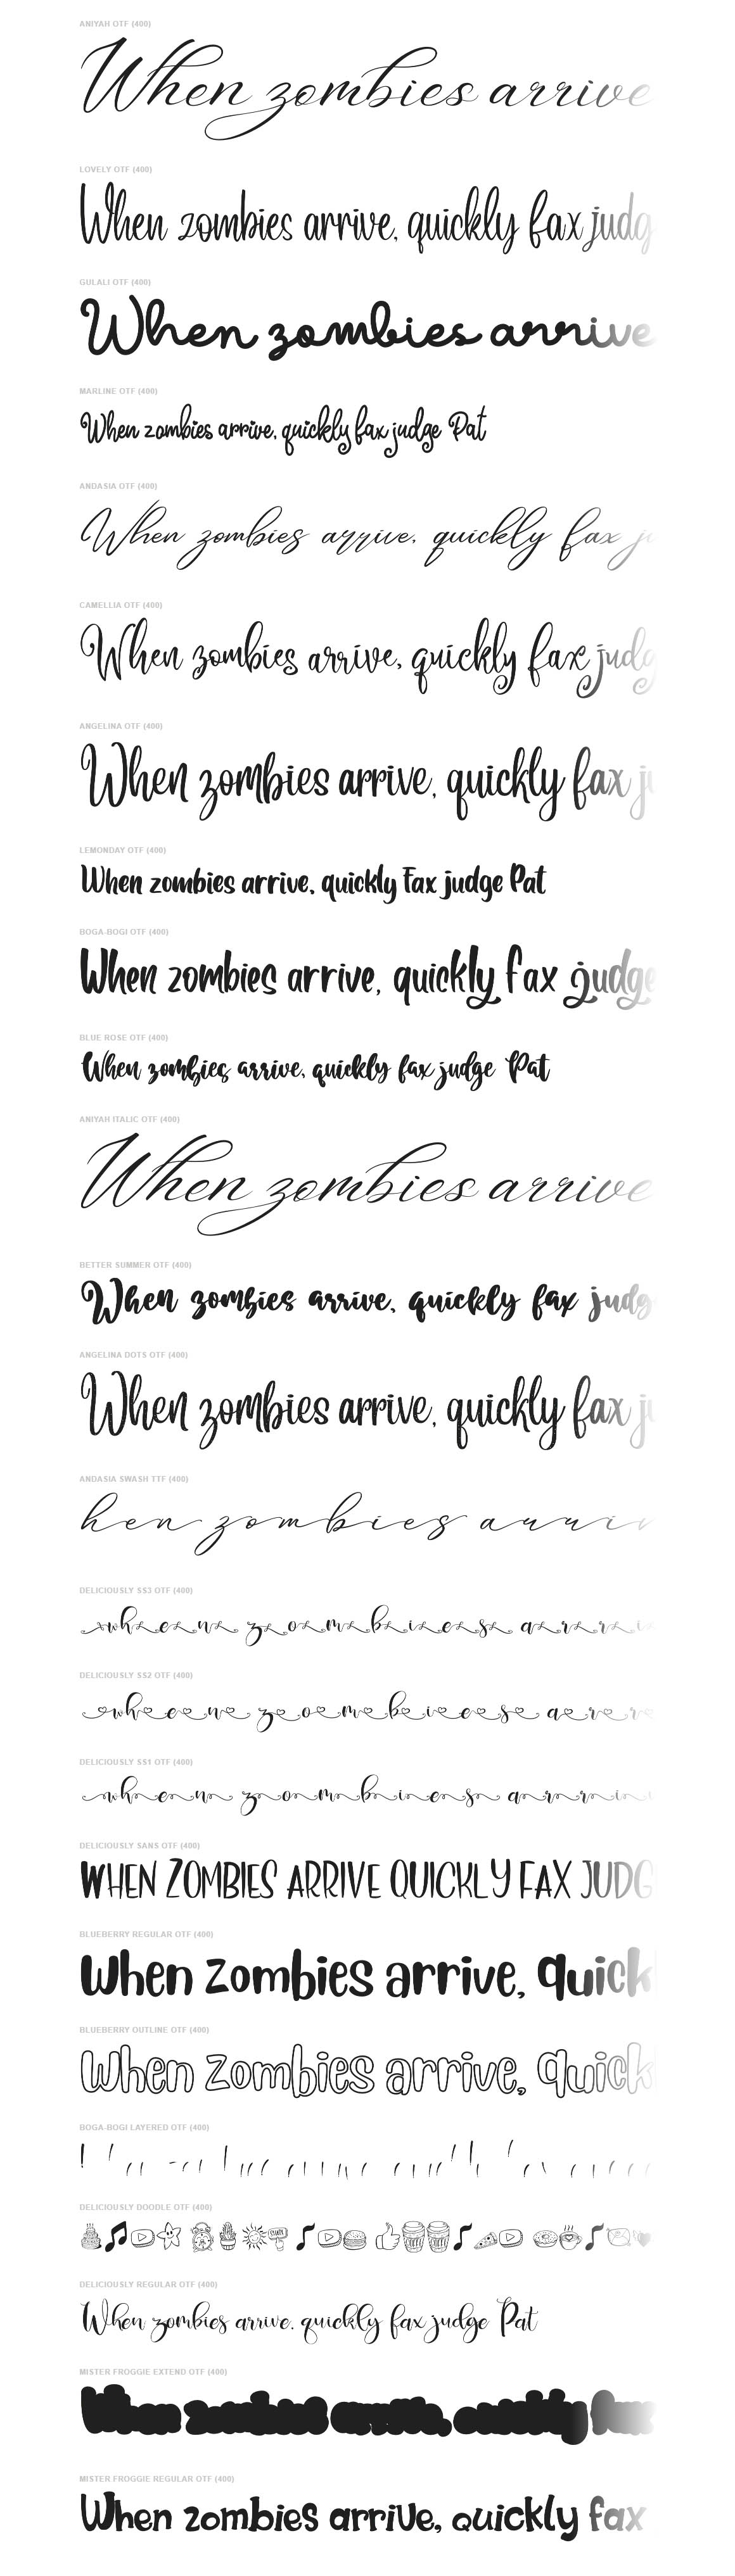 ANIYAH OTF (400)
When zombies arrive
LOVELY OTF (400)
When zombies arrive, quickly fax judg
GULALI OTF (400)
When zombies arrive
MARLINE OTF (400)
When zombies arrive, quickly fax judge Pat
ANDASIA OTF (400)
When zombies arrive, quickly fax ju
CAMELLIA OTF (400)
When zombies arrive, quickly fax judg
ANGELINA OTF (400)
When zombies arrive, quickly fax ju
LEMONDAY OTF (400)
When zombies arrive, quickly Fax judge Pat
BOGA-BOGI OTF (400)
When zombies arrive, quickly fax judge
BLUE ROSE OTF (400)
When zombies arrive, quickly fax judge Pat
ANIYAH ITALIC OTF (400)
When zombies arrive
BETTER SUMMER OTF (400)
When zombies arrive, quickly fax judg
ANGELINA DOTS OTF (400)
When zombies arrive, quickly fax ju
ANDASIA SWASH TTF (400)
hen zombies arriv
DELICIOUSLY SS3 OTF (400)
when zombies arrri
DELICIOUSLY SS2 OTF (400)
when zombies arr
DELICIOUSLY SS1 OTF (400)
when zombies arri
DELICIOUSLY SANS OTF (400)
WHEN ZOMBIES ARRIVE QUICKLY FAX JUDG
BLUEBERRY REGULAR OTF (400)
When zombies arrive, quick
BLUEBERRY OUTLINE OTF (400)
When zombies arrive, quick
BOGA-BOGI LAYERED OTF (400)
DELICIOUSLY DOODLE OTF (400)
DELICIOUSLY REGULAR OTF (400)
When zombies arrive. quickly fax judge Pat
MISTER FROGGIE EXTEND OTF (400)
MISTER FROGGIE REGULAR OTF (400)
When zombies arrive, quickly fax